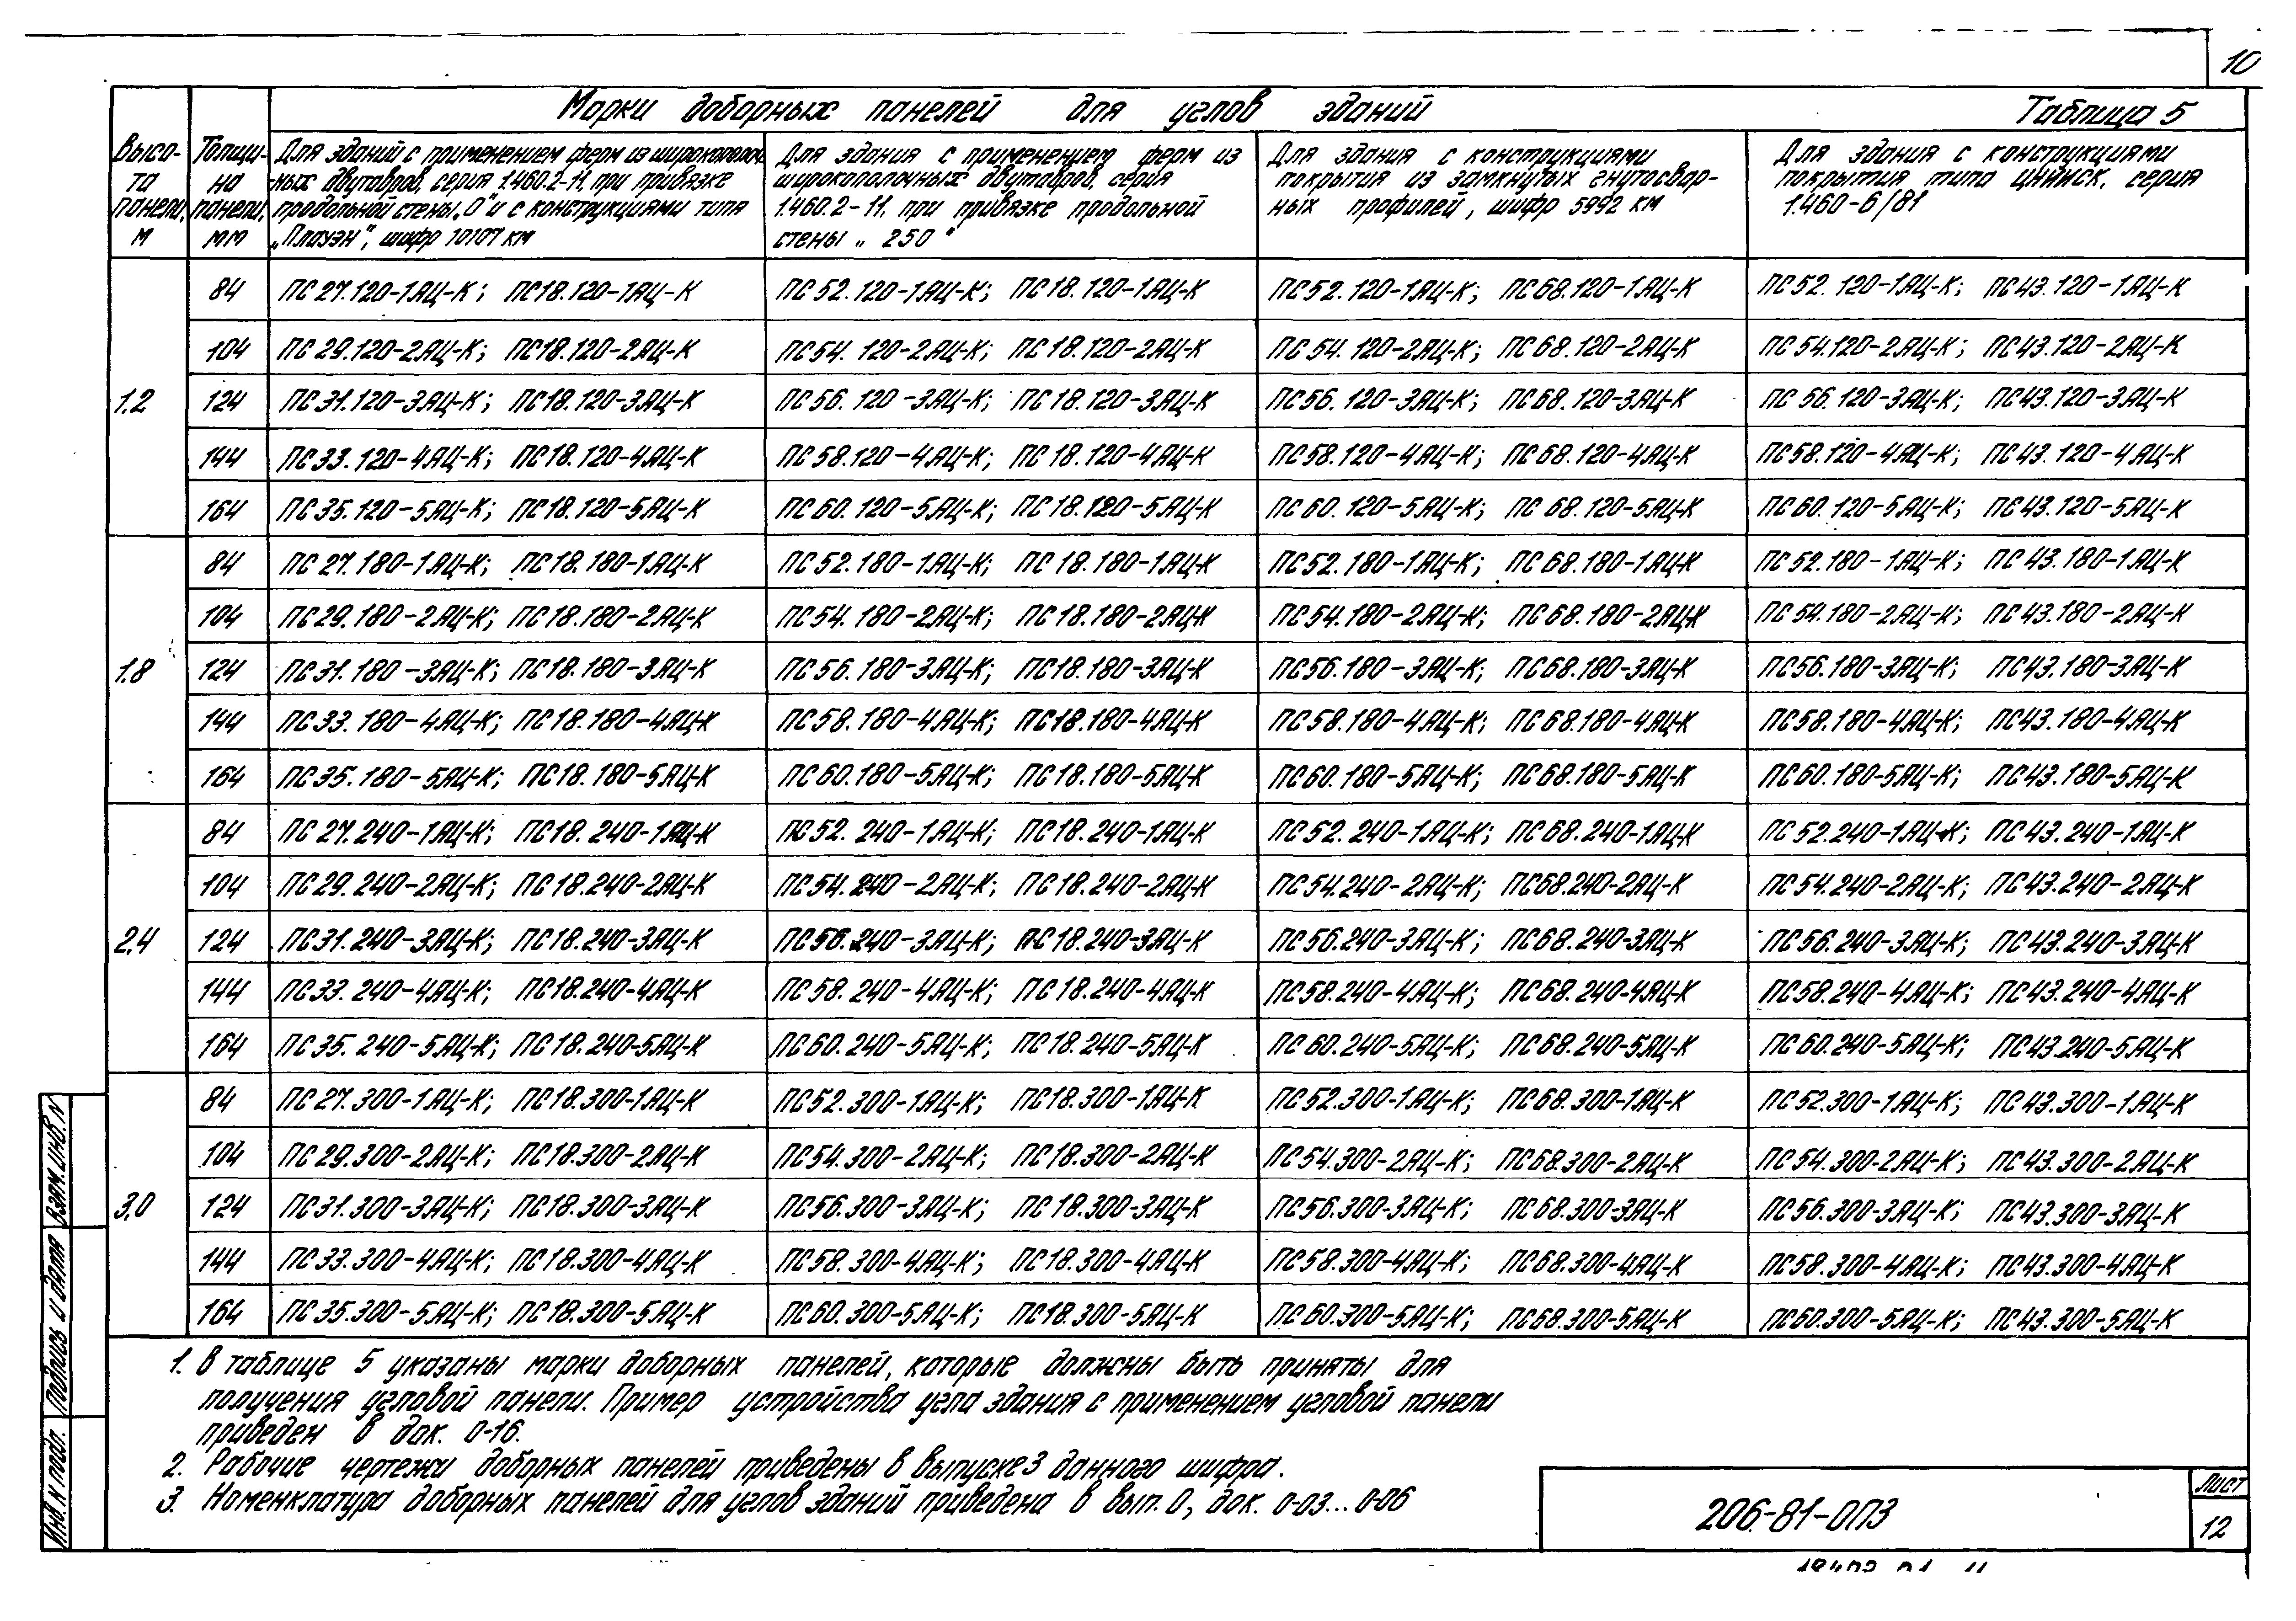 10
Марки доборных панелей для углов зданий Таблица 5
Высота панели, м
Толщина панели, мм
Для зданий с применением ферм из широкополоч-
ных двутавров, серия 1.460.2-11, при привязке
продольной стены „0" и с конструкциями типа
„Плауэн", шифр 10107 КМ
Для здания с применением ферм из
широкополочных двутавров, серия
1.460.2-11, при привязке продольной
стены „250"
Для здания с конструкциями
покрытия из замкнутых гнутосвар-
ных профилей, шифр 5992 КМ
Для здания с конструкциями
покрытия типа ЦНИИСК, серия
1.460-6/81
1.2
84 ПС27.120-1АЦ-К; ПС18.120-1АЦ-К ПС52.120-1АЦ-К; ПС18.120-1АЦ-К ПС52.120-1АЦ-К; ПС68.120-1АЦ-К ПС52.120-1АЦ-К; ПС43.120-1АЦ-К
104 ПС29.120-2АЦ-К; ПС18.120-2АЦ-К ПС54.120-2АЦ-К; ПС18.120-2АЦ-К ПС54.120-2АЦ-К; ПС68.120-2АЦ-К ПС54.120-2АЦ-К; ПС43.120-2АЦ-К
124 ПС31.120-3АЦ-К; ПС18.120-3АЦ-К ПС56.120-3АЦ-К; ПС18.120-3АЦ-К ПС56.120-3АЦ-К; ПС68.120-3АЦ-К ПС56.120-3АЦ-К; ПС43.120-3АЦ-К
144 ПС33.120-4АЦ-К; ПС18.120-4АЦ-К ПС58.120-4АЦ-К; ПС18.120-4АЦ-К ПС58.120-4АЦ-К; ПС68.120-4АЦ-К ПС58.120-4АЦ-К; ПС43.120-4АЦ-К
164 ПС35.120-5АЦ-К; ПС18.120-5АЦ-К ПС60.120-5АЦ-К; ПС18.120-5АЦ-К ПС60.120-5АЦ-К; ПС68.120-5АЦ-К ПС60.120-5АЦ-К; ПС43.120-5АЦ-К
1.8
84 ПС27.180-1АЦ-К; ПС18.180-1АЦ-К ПС52.180-1АЦ-К; ПС18.180-1АЦ-К ПС52.180-1АЦ-К; ПС68.180-1АЦ-К ПС52.180-1АЦ-К; ПС43.180-1АЦ-К
104 ПС29.180-2АЦ-К; ПС18.180-2АЦ-К ПС54.180-2АЦ-К; ПС18.180-2АЦ-К ПС54.180-2АЦ-К; ПС68.180-2АЦ-К ПС54.180-2АЦ-К; ПС43.180-2АЦ-К
124 ПС31.180-3АЦ-К; ПС18.180-3АЦ-К ПС56.180-3АЦ-К; ПС18.180-3АЦ-К ПС56.180-3АЦ-К; ПС68.180-3АЦ-К ПС56.180-3АЦ-К; ПС43.180-3АЦ-К
144 ПС33.180-4АЦ-К; ПС18.180-4АЦ-К ПС58.180-4АЦ-К; ПС18.180-4АЦ-К ПС58.180-4АЦ-К; ПС68.180-4АЦ-К ПС58.180-4АЦ-К; ПС43.180-4АЦ-К
164 ПС35.180-5АЦ-К; ПС18.180-5АЦ-К ПС60.180-5АЦ-К; ПС18.180-5АЦ-К ПС60.180-5АЦ-К; ПС68.180-5АЦ-К ПС60.180-5АЦ-К; ПС43.180-5АЦ-К
2,4
84 ПС27.240-1АЦ-К; ПС18.240-1АЦ-К ПС52.240-1АЦ-К; ПС18.240-1АЦ-К ПС52.240-1АЦ-К; ПС68.240-1АЦ-К ПС52.240-1АЦ-К; ПС43.240-1АЦ-К
104 ПС29.240-2АЦ-К; ПС18.240-2АЦ-К ПС54.240-2АЦ-К; ПС18.240-2АЦ-К ПС54.240-2АЦ-К; ПС68.240-2АЦ-К ПС54.240-2АЦ-К; ПС43.240-2АЦ-К
124 ПС31.240-3АЦ-К; ПС18.240-3АЦ-К ПС56.240-3АЦ-К; ПС18.240-3АЦ-К ПС56.240-3АЦ-К; ПС68.240-3АЦ-К ПС56.240-3АЦ-К; ПС43.240-3АЦ-К
144 ПС33.240-4АЦ-К; ПС18.240-4АЦ-К ПС58.240-4АЦ-К; ПС18.240-4АЦ-К ПС58.240-4АЦ-К; ПС68.240-4АЦ-К ПС58.240-4АЦ-К; ПС43.240-4АЦ-К
164 ПС35.240-5АЦ-К; ПС18.240-5АЦ-К ПС60.240-5АЦ-К; ПС18.240-5АЦ-К ПС60.240-5АЦ-К; ПС68.240-5АЦ-К ПС60.240-5АЦ-К; ПС43.240-5АЦ-К
3,0
84 ПС27.300-1АЦ-К; ПС18.300-1АЦ-К ПС52.300-1АЦ-К; ПС18.300-1АЦ-К ПС52.300-1АЦ-К; ПС68.300-1АЦ-К ПС52.300-1АЦ-К; ПС43.300-1АЦ-К
104 ПС29.300-2АЦ-К; ПС18.300-2АЦ-К ПС54.300-2АЦ-К; ПС18.300-2АЦ-К ПС54.300-2АЦ-К; ПС68.300-2АЦ-К ПС54.300-2АЦ-К; ПС43.300-2АЦ-К
124 ПС31.300-3АЦ-К; ПС18.300-3АЦ-К ПС56.300-3АЦ-К; ПС18.300-3АЦ-К ПС56.300-3АЦ-К; ПС68.300-3АЦ-К ПС56.300-3АЦ-К; ПС43.300-3АЦ-К
144 ПС33.300-4АЦ-К; ПС18.300-4АЦ-К ПС58.300-4АЦ-К; ПС18.300-4АЦ-К ПС58.300-4АЦ-К; ПС68.300-4АЦ-К ПС58.300-4АЦ-К; ПС43.300-4АЦ-К
164 ПС35.300-5АЦ-К; ПС18.300-5АЦ-К ПС60.300-5АЦ-К; ПС18.300-5АЦ-К ПС60.300-5АЦ-К; ПС68.300-5АЦ-К ПС60.300-5АЦ-К; ПС43.300-5АЦ-К
1. В таблице 5 указаны марки доборных панелей, которые должны быть приняты для
получения угловой панели. Пример устройства угла здания с применением угловой панели
приведен в док. 0-16.
2. Рабочие чертежи доборных панелей приведены в выпуске 3 данного шифра.
3. Номенклатура доборных панелей для углов зданий приведена в вып. 0, док. 0-03...0-06
206-81-0ПЗ
Лист
12
Инв. N подп. Подпись и дата Взам. инв. N